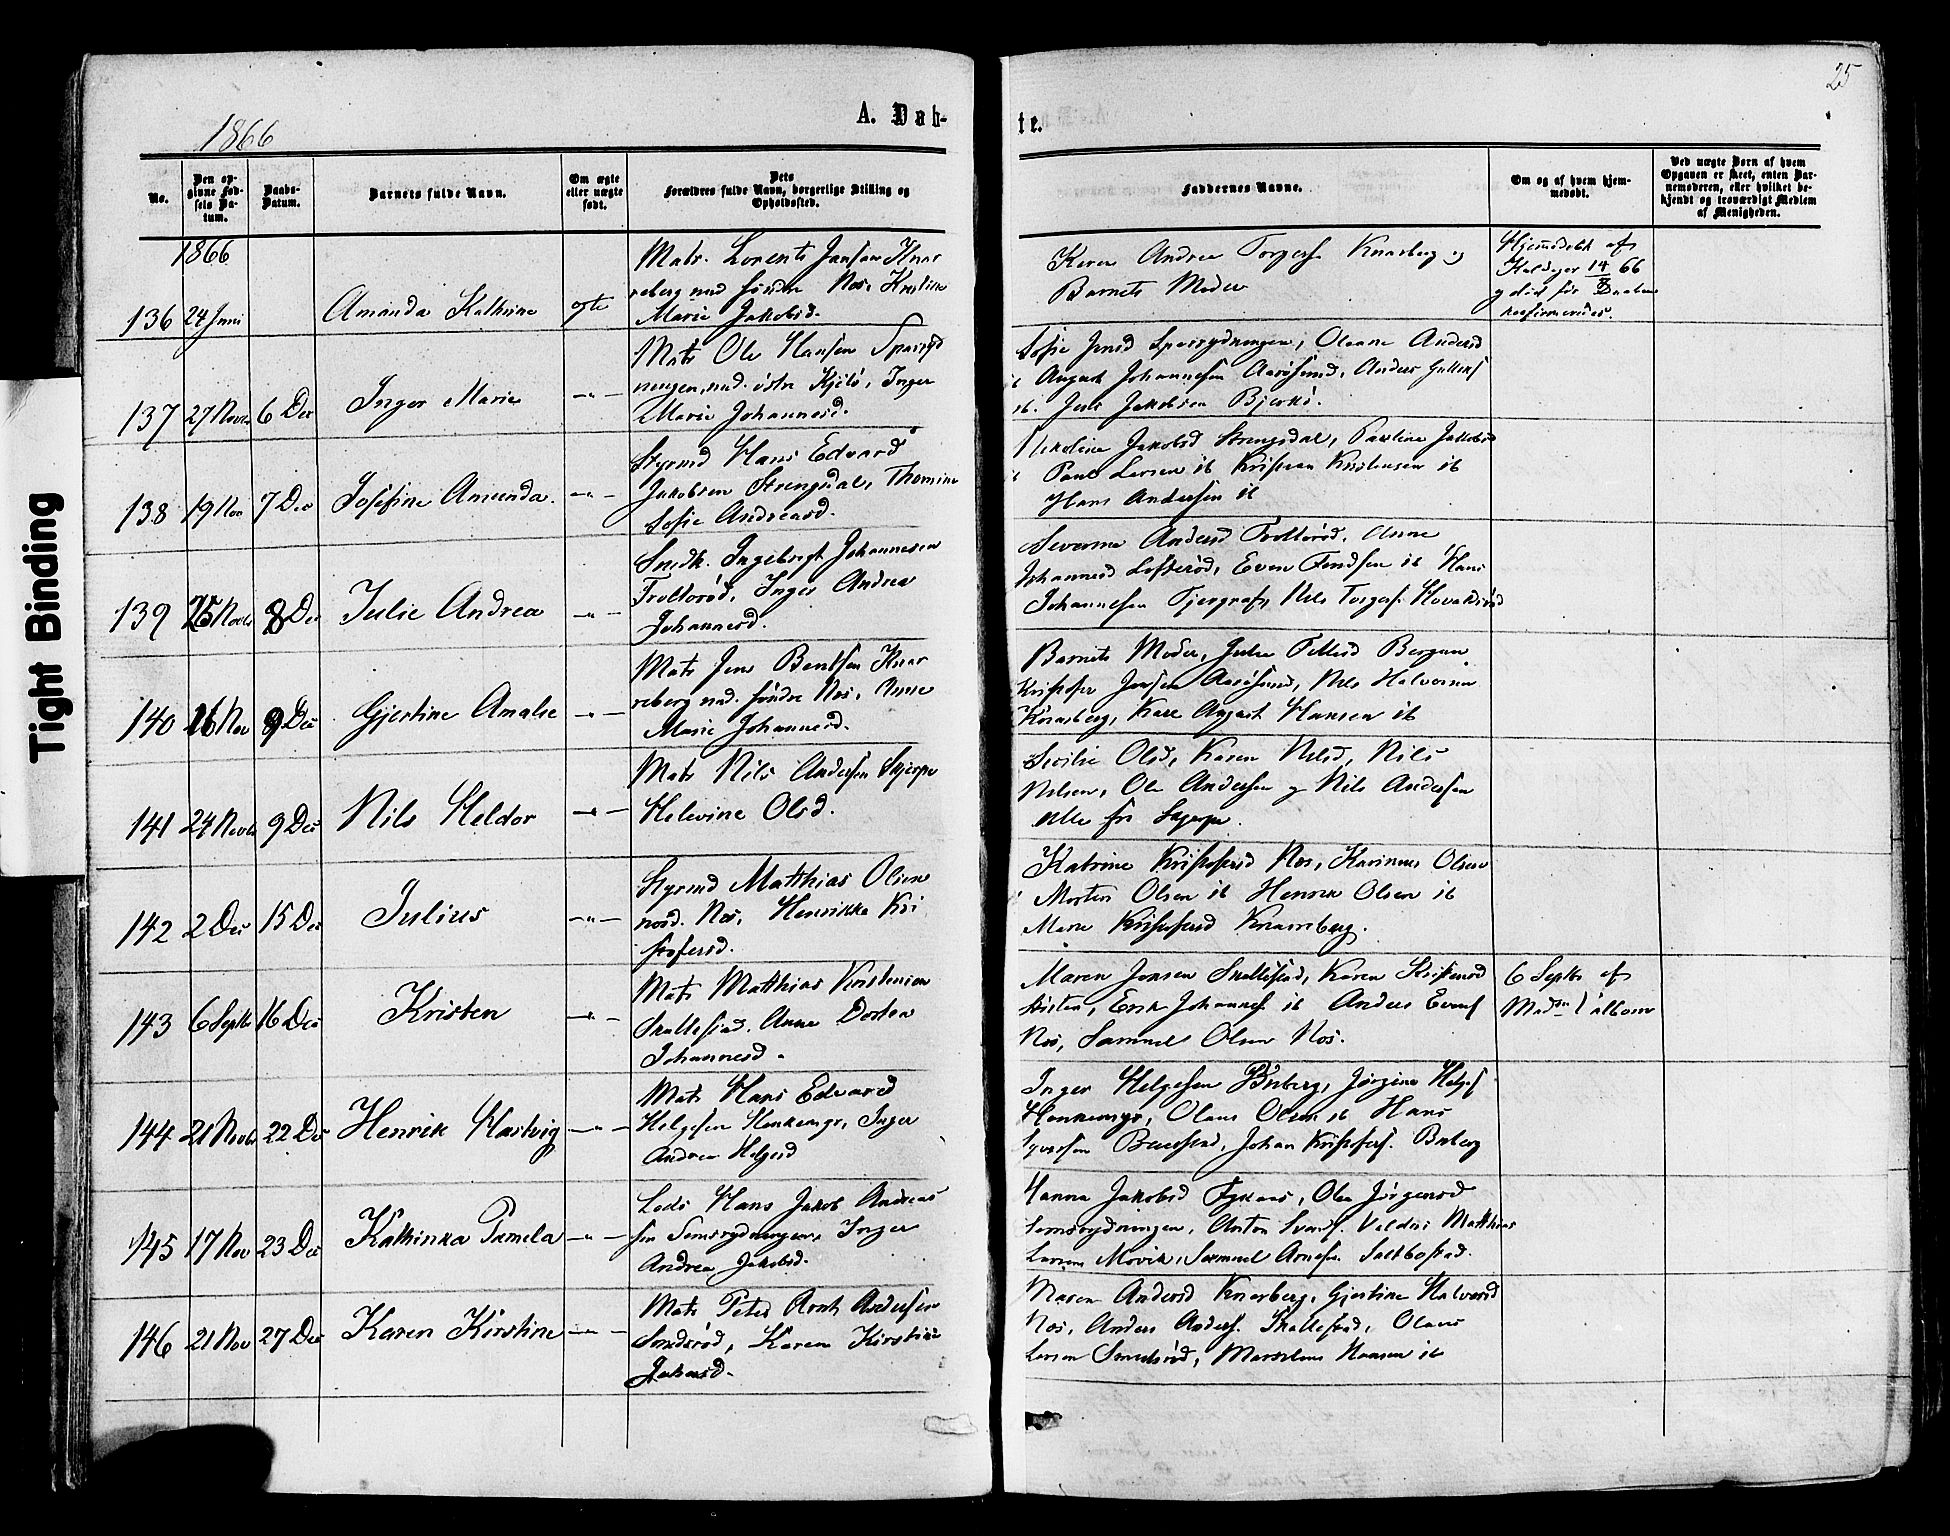 25
1866
A. Døb-
te.
No.
Den op-
givne Fød-
sels Da-
tum.
Daabs-
Datum.
Barnets fulde Navn.
Om ægte
eller uægte
født.
Dets
Forældres fulde Navn, borgerlige Stilling og
Opholdssted.
Faddernes Navne.
Om og af hvem hjem-
medøbt.
Ved uægte Børn af hvem
Opgaven er skeet, enten Bar-
nemoderen, eller hvilket be-
kjendt og troværdigt Medlem
af Menigheden.
1866
136 24 Juni Amanda Kathrine ægte
Matr. Lorents Jansen Knar
reberg nud søndre Nøs, Kristine
Marie Jakobsd.
Karen Andrea Torgersf Knarberg og
Barnets Moder
Hjemmedøbt af
14/8 66
og død før Daaben
konfirmeredes.
137 27 Novb 6 Dec Inger Marie —"—
Matr Ole Hansen Sparryd
ningen, nud. østre Kjølø, Inger
Marie Johannesd.
Sofie Jensd Sparrydningen, Oleane Andersd
ib August Johannesen Aarøsund, Anders Gullikss
ib. Jens Jakobsen Bjerkø.
138 19 Nov 7 Dec Josefine Amanda. —"—
Styrmd Hans Edvard
Jakobsen Strengsdal, Thomine
Sofie Andreasd.
Nikoline Jakobsd Strengsdal, Pauline Jakobsd
ib Paul Larsen ib Kristian Kristensen ib
Hans Andersen ib
139 25 Novb 8 Dec Julie Andrea —"—
Snedk. Ingebregt Johannesen
Troltørød, Inger Andrea
Johannesd.
Severine Andersd Troltørød, Anne
Johannesd Lofterød, Even Findsen ib Hans
Johannesen Tjergraf, Nils Torgers.
140 16 Nov 9 Dec Gjertine Amalie —"—
Matr Jens Bentsen Knar
reberg nud. søndre Nøs, Anne
Marie Johannesd.
Barnets Moder, Julie Tellefsd Bergan
Kristofer Jansen Aarøsund, Nils Halvorsen
Knarberg, Karl August Hansen ib
141 24 Novb 9 Dec Nils Heldor —"—
Matr Nils Andersen Skjerpe
Helevine Olsd.
Sesilie Olsd, Karen Nilsd, Nils
Nilsen, Ole Andersen og Nils Andersen
alle fra Skjerpe.
142 2 Dec 15 Dec Julius —"—
Styrmd Matthias Olsen
nord. Nøs, Henrikke Kri
stofersd.
Katrine Kristofersd Nøs, Karinius Olsen
Morten Olsen ib Henrik Olsen ib
Maren Kristofersd Knarreberg.
143 6 Septbr 16 Dec Kristen —"—
Matr Matthias Kristensen
Skallestad. Anne Dortea
Johannesd.
Maren Jensen Skallestad, Karen Kristensd
Erik Johannesf ib Anders Evensf
Nøs, Samuel Olsen Nøs.
6 Septbr af
144 21 Novb 22 Dec Henrik Hartvig —"—
Matr Hans Edvard
Helgesen Honkemyr, Inger
Andrea Helgesd
Inger Helgesen Buberg, Jørgine Helgesf
Honkemyr, Olaus Olsen ib Hans
Syvertsen Buerstad, Johan Kristofers. Buberg
145 17 Nov 23 Dec Kathinka Pamela —"—
Lods Hans Jakob Andreas
sen Semsrydningen, Inger
Andrea Jakobsd.
Hanna Jakobsd Fyknes, Olea Jørgensd
Semsrydningen, Anton Svends. Valdris Matthias
Larsen Movik, Samuel Arnesen Saltbostad.
146 21 Nov 27 Dec Karen Kirstine —"—
Matr Peter Arnt Andersen
Smidsrød, Karen Kirstine
Jakobsd.
Maren Andersd Knarberg, Gjertine Halvorsd
Nøs, Anders Anders. Skallestad, Olaus
Larsen Smidsrød, Marselius Hansen ib
Tight Binding